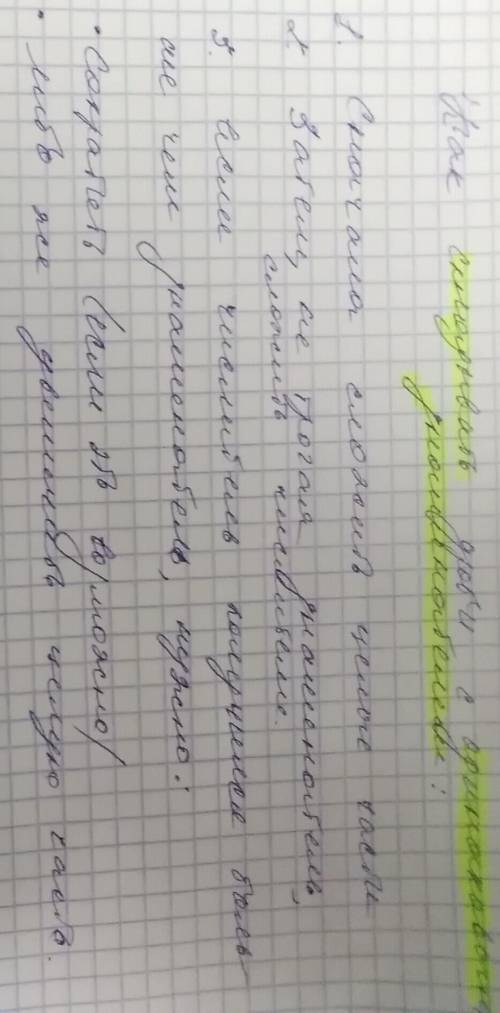 Как складывать дроби с одинаковым
знаменателем:
1. Сначала сложить целые части
2. Затем, не трогая знаменатель,
сложить числители.
3. Если числитель получился боль-
ше чем знаменатель, нужно:
• Сократить (если это возможно)
• либо же увеличить целую часть.